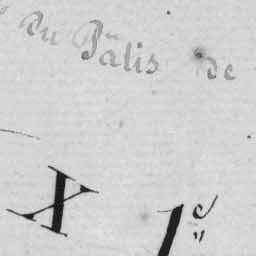 Du Palis de
X 1e